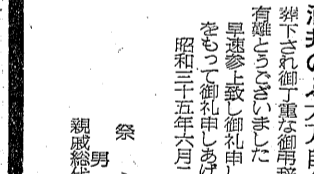 葬下され御丁重な御弔辞
有難とうございました
早速参上致し御礼申し
をもって御礼申しあげ
昭和三十五年六月二
祭
男
親戚総代